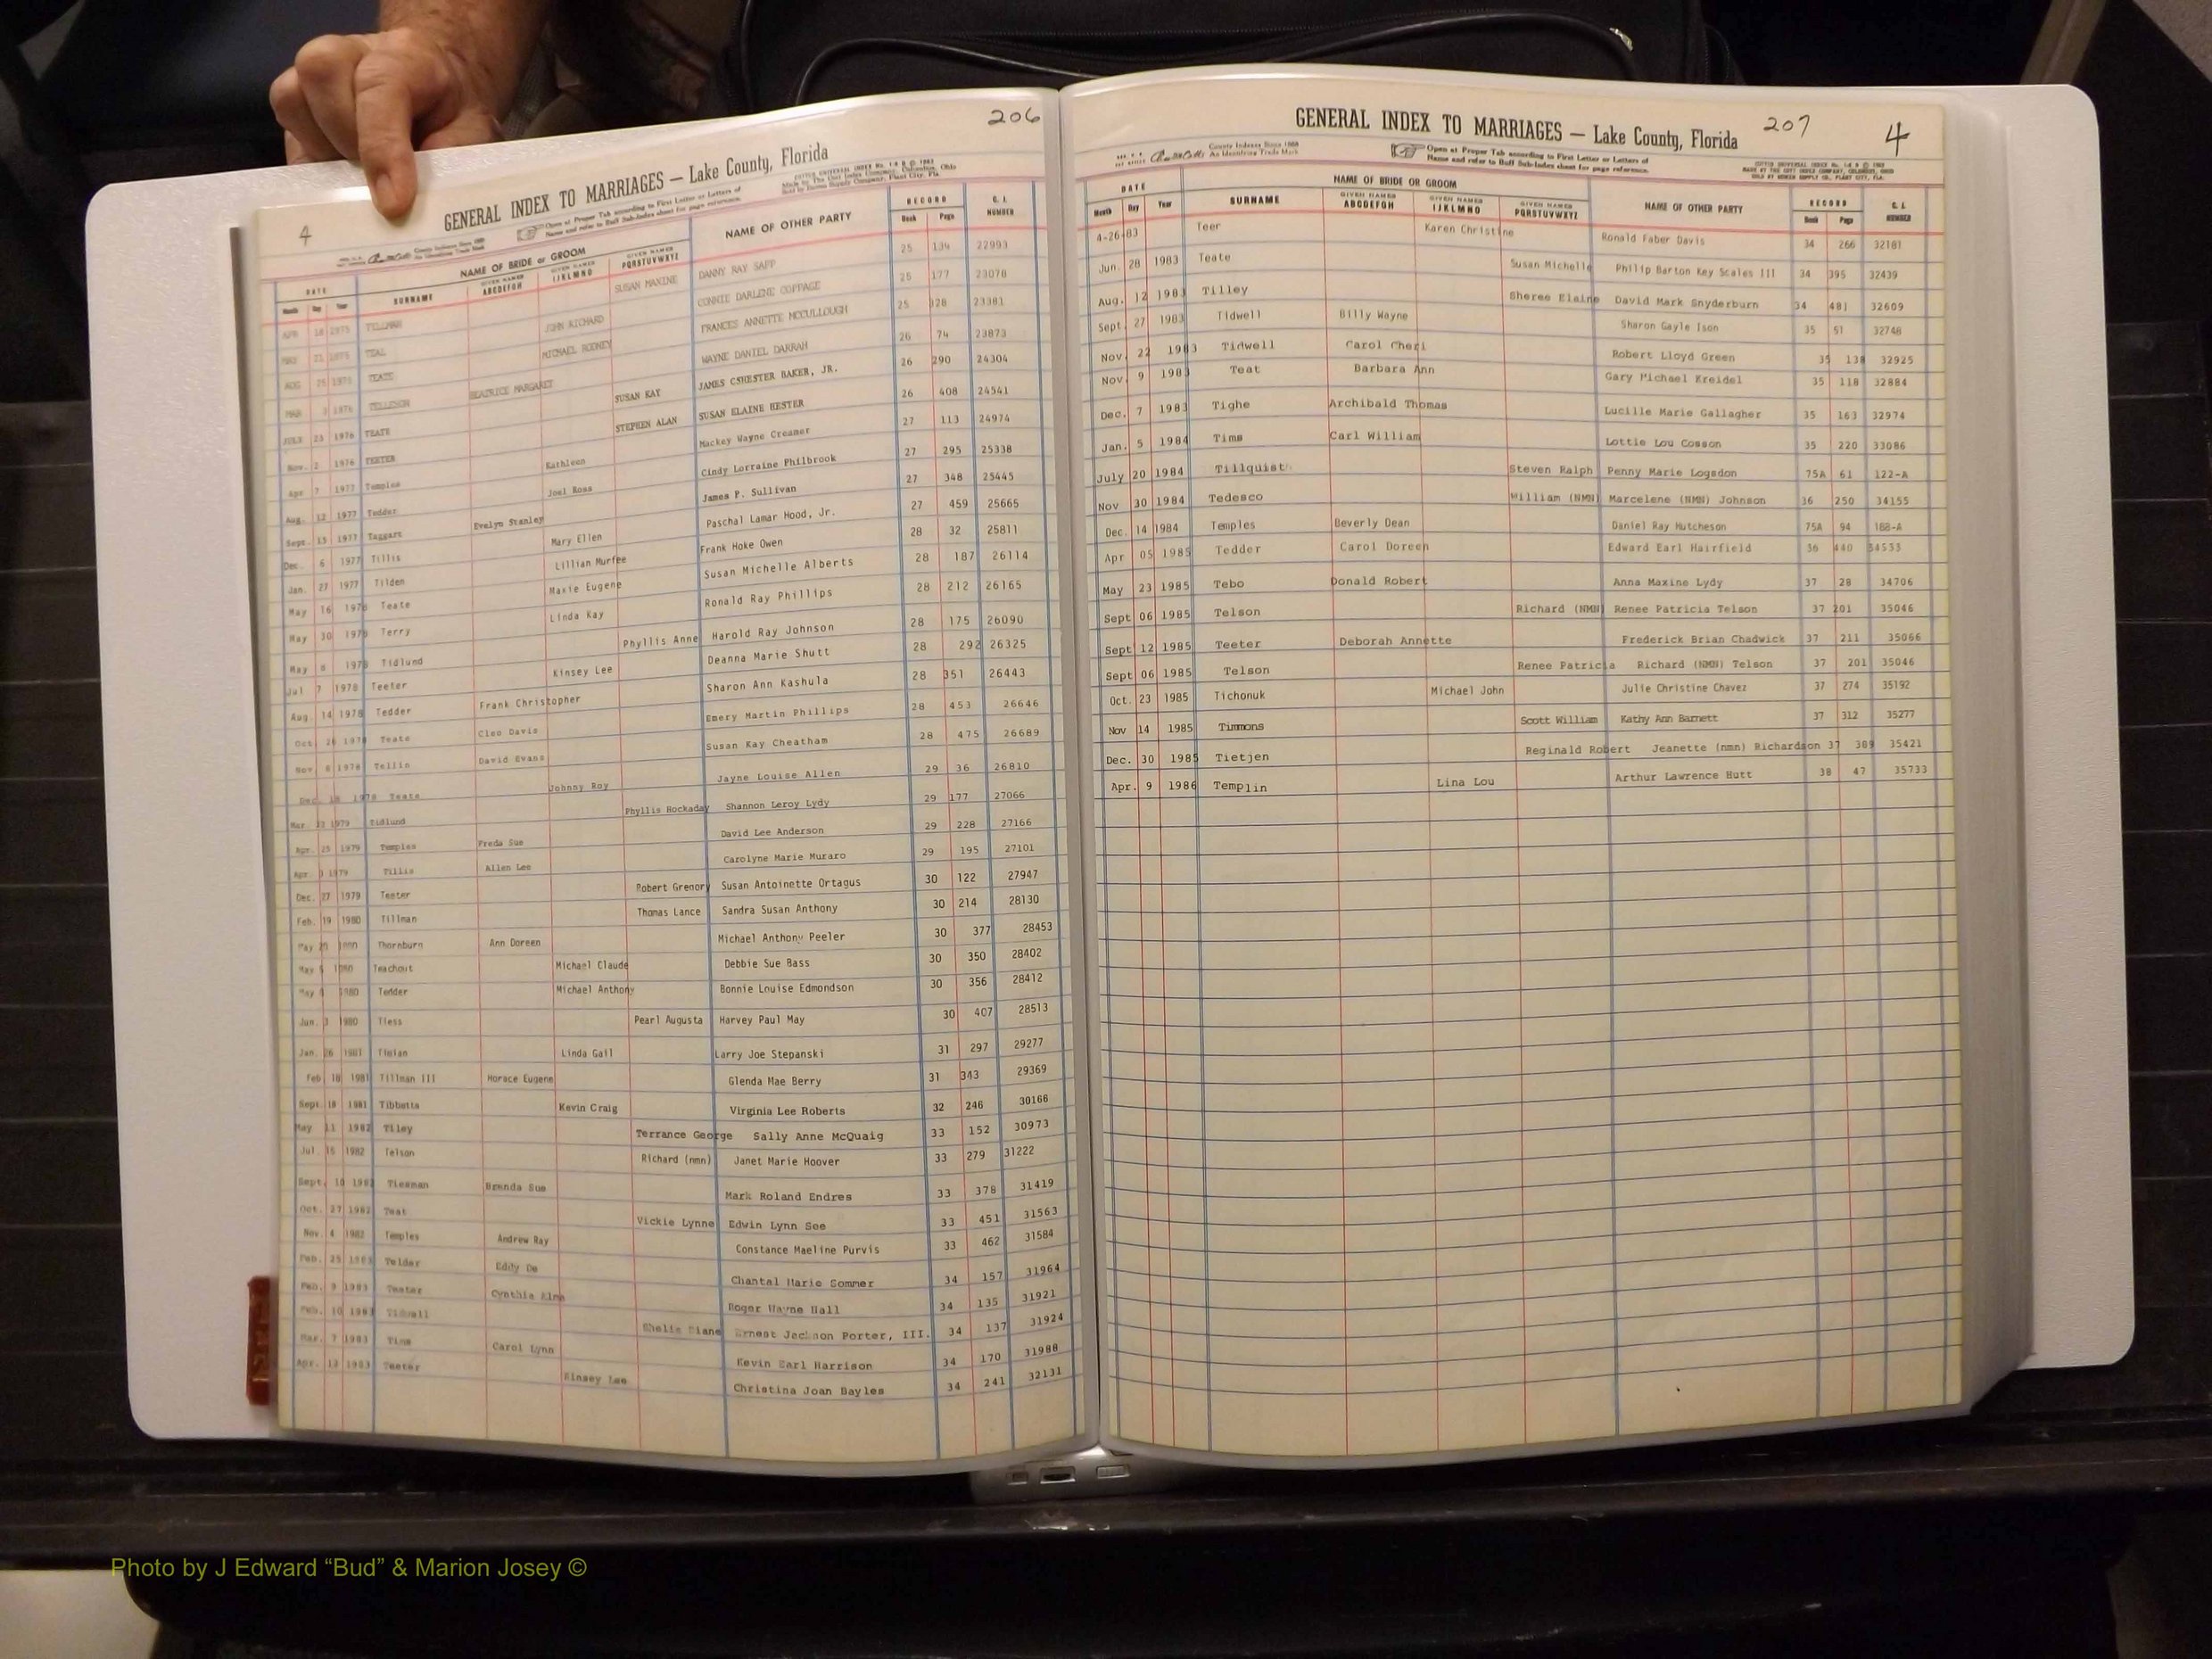 206
4
GENERAL INDEX TO MARRIAGES — Lake County, Florida
County Indexes Since 1888
An Identifying Trade Mark
Open at Proper Tab according to First Letter or Letters of
Name and refer to Buff Sub-Index sheet for page reference.
DATE NAME OF BRIDE or GROOM NAME OF OTHER PARTY RECORD C. I. NUMBER
Month Day Year SURNAME GIVEN NAMES ABCDEFGH GIVEN NAMES IJKLMNO GIVEN NAMES PQRSTUVWXYZ Book Page
APR 18 1975 TILLMAN SUSAN MAXINE DANNY RAY SAPP 25 134 22993
MAY 1975 TEAL JOHN RICHARD CONNIE DARLENE COPPAGE 25 177 23078
AUG 25 1975 TEATE MICHAEL RODNEY FRANCES ANNETTE MCCULLOUGH 25 328 23381
MAR 3 1976 BEATRICE MARGARET WAYNE DANIEL DARRAH 26 74 23873
JULY 23 1976 TEATE SUSAN KAY JAMES CSHESTER BAKER, JR. 26 290 24304
Nov. 2 1976 TEETER STEPHEN ALAN SUSAN ELAINE HESTER 26 408 24541
Apr 7 1977 Temples Kathleen Mackey Wayne Creamer 27 113 24974
Aug. 12 1977 Tedder Joel Ross Cindy Lorraine Philbrook 27 295 25338
Sept. 13 1977 Taggart Evelyn Stanley James P. Sullivan 27 348 25445
Dec. 6 1977 Tillis Mary Ellen Paschal Lamar Hood, Jr. 27 459 25665
Jan. 27 1977 Tilden Lillian Murfee Frank Hoke Owen 28 32 25811
May 16 1978 Teate Maxie Eugene Susan Michelle Alberts 28 187 26114
May 30 1978 Terry Linda Kay Ronald Ray Phillips 28 212 26165
May 8 1978 Tidlund Phyllis Anne Harold Ray Johnson 28 175 26090
Jul 7 1978 Teeter Kinsey Lee Deanna Marie Shutt 28 292 26325
Aug. 14 1978 Tedder Frank Christopher Sharon Ann Kashula 28 351 26443
Oct 26 1978 Teate Cleo Davis Emery Martin Phillips 28 453 26646
Nov 8 1978 Tellin David Evans Susan Kay Cheatham 28 475 26689
Dec. 18 1978 Teate Johnny Roy Jayne Louise Allen 29 36 26810
Mar. 1979 Tidlund Phyllis Hockaday Shannon Leroy Lydy 29 177 27066
Apr. 25 1979 Temples Freda Sue David Lee Anderson 29 228 27166
Apr. 3 1979 Tillis Allen Lee Carolyne Marie Muraro 29 195 27101
Dec. 27 1979 Teater Robert Grenory Susan Antoinette Ortagus 30 122 27947
Feb. 19 1980 Tillman Thomas Lance Sandra Susan Anthony 30 214 28130
May 1980 Thornburn Ann Doreen Michael Anthony Peeler 30 377 28453
May 1980 Teachout Michael Claude Debbie Sue Bass 30 350 28402
May 1980 Tedder Michael Anthony Bonnie Louise Edmondson 30 356 28412
Jun. 3 1980 Tless Pearl Augusta Harvey Paul May 30 407 28513
Jan. 26 1981 Linda Gail Larry Joe Stepanski 31 297 29277
Feb 18 1981 Tillman III Horace Eugene Glenda Mae Berry 31 343 29369
Sept. 18 1981 Tibbetts Kevin Craig Virginia Lee Roberts 32 246 30166
May 11 1982 Tiley Terrance George Sally Anne McQuaig 33 152 30973
Jul. 1982 Telson Richard (nmn) Janet Marie Hoover 33 279 31222
Sept. 10 1982 Brenda Sue Mark Roland Endres 33 378 31419
Oct. 27 1982 Teat Vickie Lynne Edwin Lynn See 33 451 31563
Nov. 4 1982 Temples Andrew Ray Constance Maeline Purvis 33 462 31584
Feb. 25 Eddy De Chantal Marie Sommer 34 157 31964
Feb. 9 1983 Teeter Cynthia Roger Wayne Hall 34 135 31921
Feb. 10 1983 Tidwell Diane Ernest Jackson Porter, III. 34 137 31924
Mar. 7 1983 Carol Lynn Kevin Earl Harrison 34 170 31988
Apr. 12 1983 Teeter Kinsey Lee Christina Joan Bayles 34 241 32131
207
4
GENERAL INDEX TO MARRIAGES — Lake County, Florida
County Indexes Since 1888
An Identifying Trade Mark
Open at Proper Tab according to First Letter or Letters of
Name and refer to Buff Sub-Index sheet for page reference.
DATE NAME OF BRIDE OR GROOM NAME OF OTHER PARTY RECORD C. I. NUMBER
Month Day Year SURNAME GIVEN NAMES ABCDEFGH GIVEN NAMES IJKLMNO GIVEN NAMES PQRSTUVWXYZ Book Page
4-26-83 Teer Karen Christine Ronald Faber Davis 34 266 32181
Jun. 28 1983 Teate Susan Michelle Philip Barton Key Scales III 34 395 32439
Aug. 12 1983 Tilley Sheree Elaine David Mark Snyderburn 34 481 32609
Sept. 27 1983 Tidwell Billy Wayne Sharon Gayle Ison 35 51 32748
Nov. 22 1983 Tidwell Carol Cheri Robert Lloyd Green 35 138 32925
Nov. 9 1983 Teat Barbara Ann Gary Michael Kreidel 35 118 32884
Dec. 7 1983 Tighe Archibald Thomas Lucille Marie Gallagher 35 163 32974
Jan. 5 1984 Tims Carl William Lottie Lou Cosson 35 220 33086
July 20 1984 Tillquist Steven Ralph Penny Marie Logsdon 75A 61 122-A
Nov 30 1984 Tedesco William (NMN) Marcelene (NMN) Johnson 36 250 34155
Dec. 14 1984 Temples Beverly Dean Daniel Ray Hutcheson 75A 94 188-A
Apr 05 1985 Tedder Carol Doreen Edward Earl Hairfield 36 440 34533
May 23 1985 Tebo Donald Robert Anna Maxine Lydy 37 28 34706
Sept 06 1985 Telson Richard (NMN) Renee Patricia Telson 37 201 35046
Sept 12 1985 Teeter Deborah Annette Frederick Brian Chadwick 37 211 35066
Sept 06 1985 Telson Renee Patricia Richard (NMN) Telson 37 201 35046
Oct. 23 1985 Tichonuk Michael John Julie Christine Chavez 37 274 35192
Nov 14 1985 Timmons Scott William Kathy Ann Barnett 37 312 35277
Dec. 30 1985 Tietjen Reginald Robert Jeanette (nmn) Richardson 37 389 35421
Apr. 9 1986 Templin Lina Lou Arthur Lawrence Hutt 38 47 35733
Photo by J Edward “Bud” & Marion Josey ©